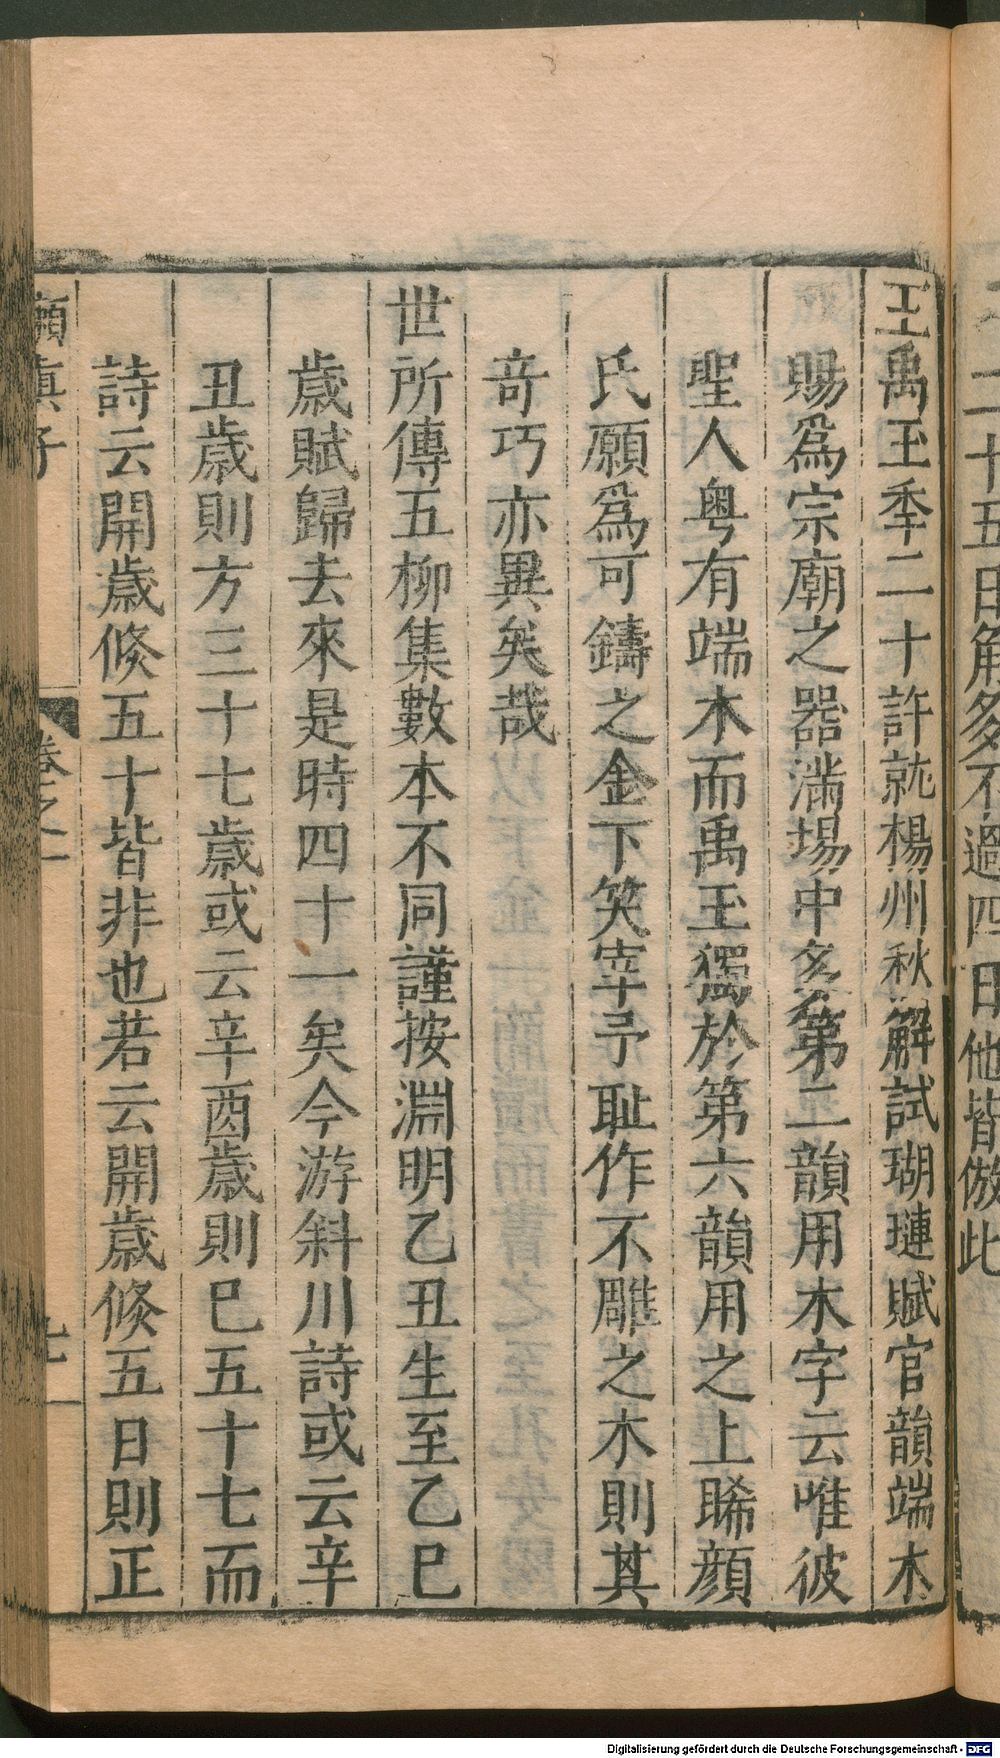 王禹玉年二十許就楊州秋解試瑚璉賦官韻端木
賜爲宗廟之器滿場中多第二韻用木字云唯彼
聖人粤有端木而禹玉獨於第六韻用之上睎顔
氏願爲可鑄之金下笑宰予耻作不雕之木則其
竒巧亦異矣哉
世所傳五柳集數本不同謹按淵明乙丑生至乙巳
歳賦歸去來是時四十一矣今游斜川詩或云辛
丑歳則方三十七歳或云辛酉歳則已五十七而
詩云開歳倐五十皆非也若云開歳倐五日則正
嬾真子
卷之一
七
二十五日解多不過四日他皆倣此
Digitalisierung gefördert durch die Deutsche Forschungsgemeinschaft - DFG